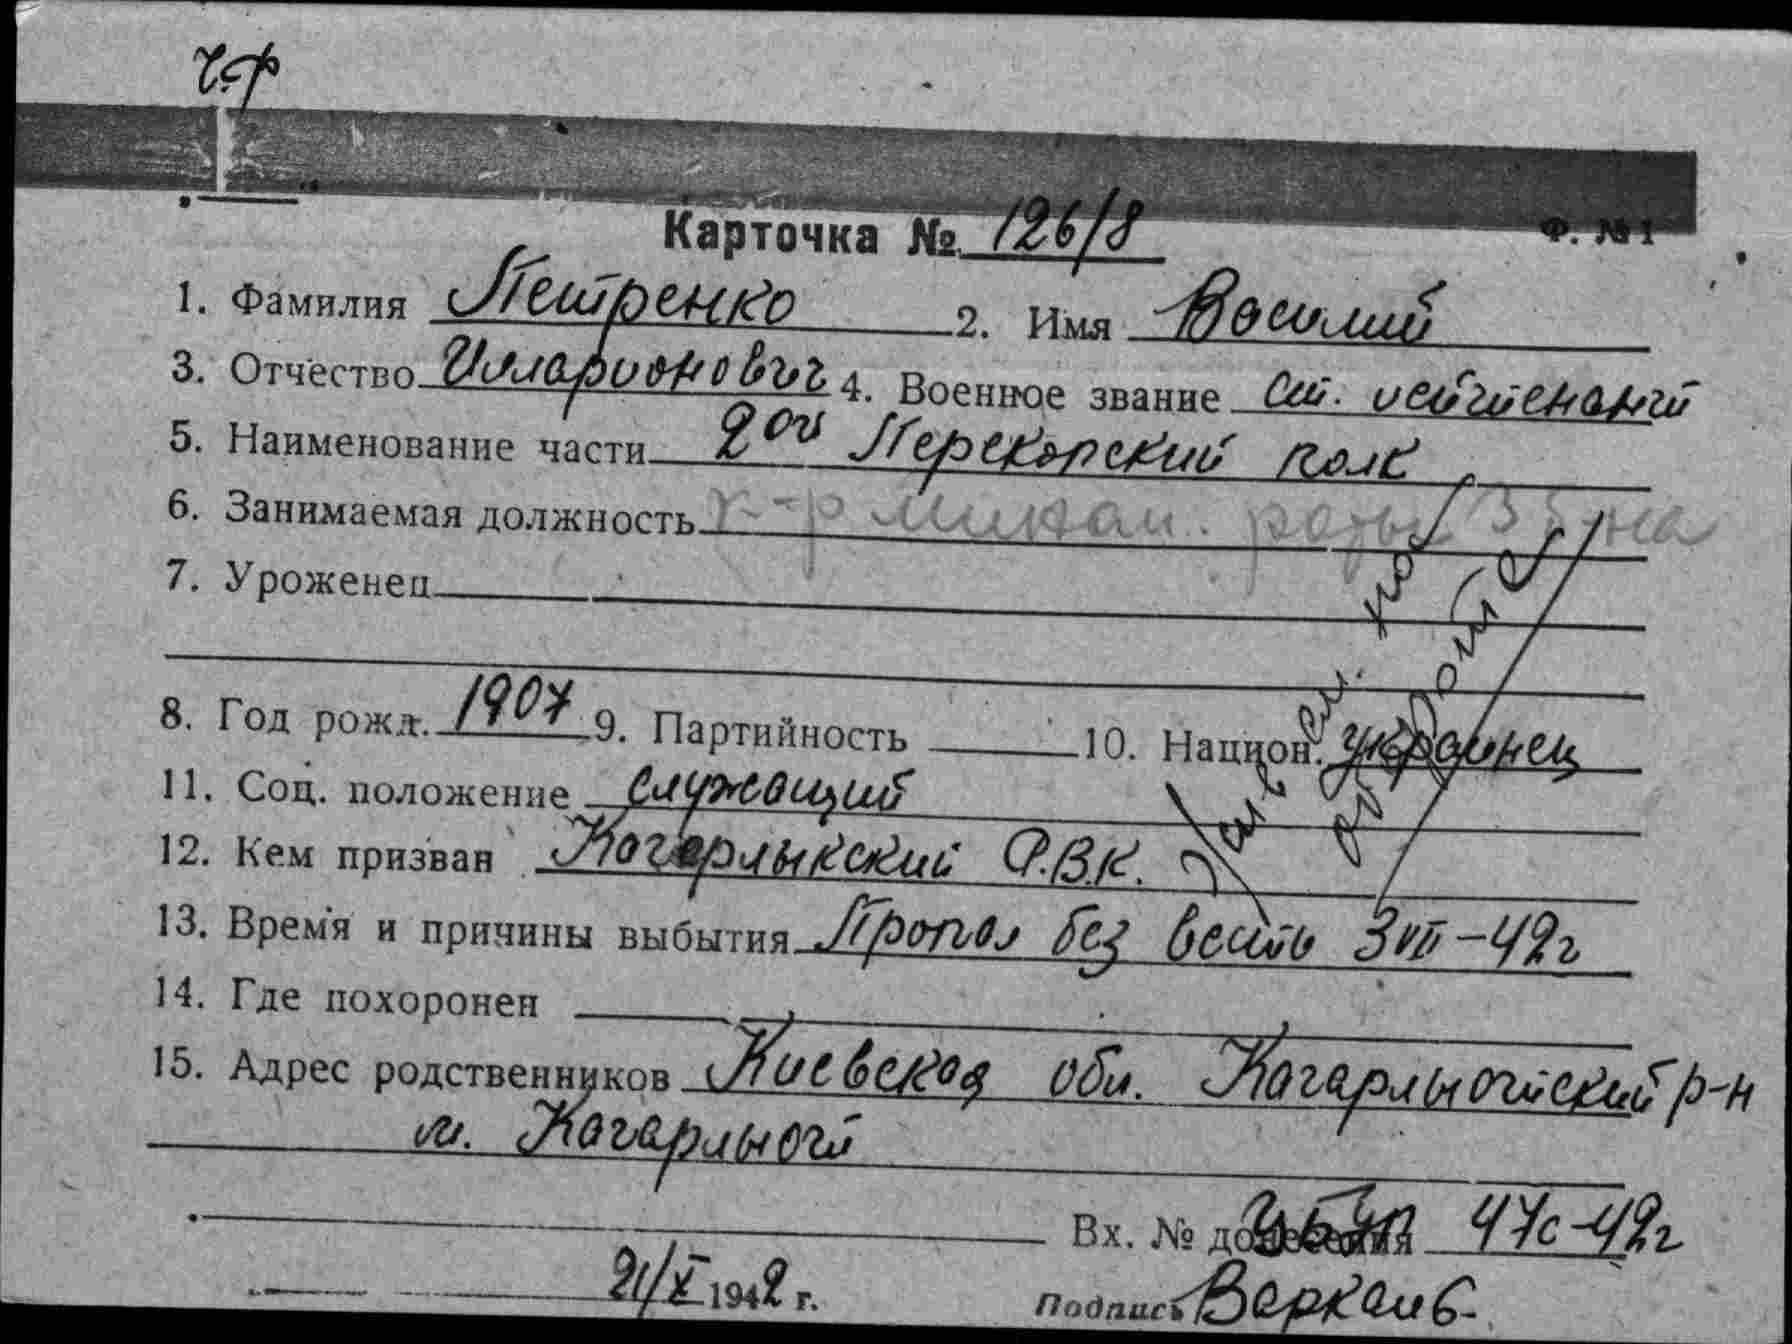 ч.ф
Карточка № 126/8
Ф. № 1
1. Фамилия Петренко 2. Имя Василий
3. Отчество Илларионович 4. Военное звание ст. лейтенант
5. Наименование части 2ой Перекопский полк
6. Занимаемая должность к-р минам. роты 3 б-на
7. Уроженец
8. Год рожд. 1907 9. Партийность 10. Национ. украинец
11. Соц. положение служащий
12. Кем призван Кагарлыкский Р.В.К.
13. Время и причины выбытия Пропал без вести 3 VII-42г
14. Где похоронен
15. Адрес родственников Киевская обл. Кагарлыотский р-н
м. Кагарлыот
на обороте
Вх. № донесения 47с-42г
21/X 1942 г.
Подпись